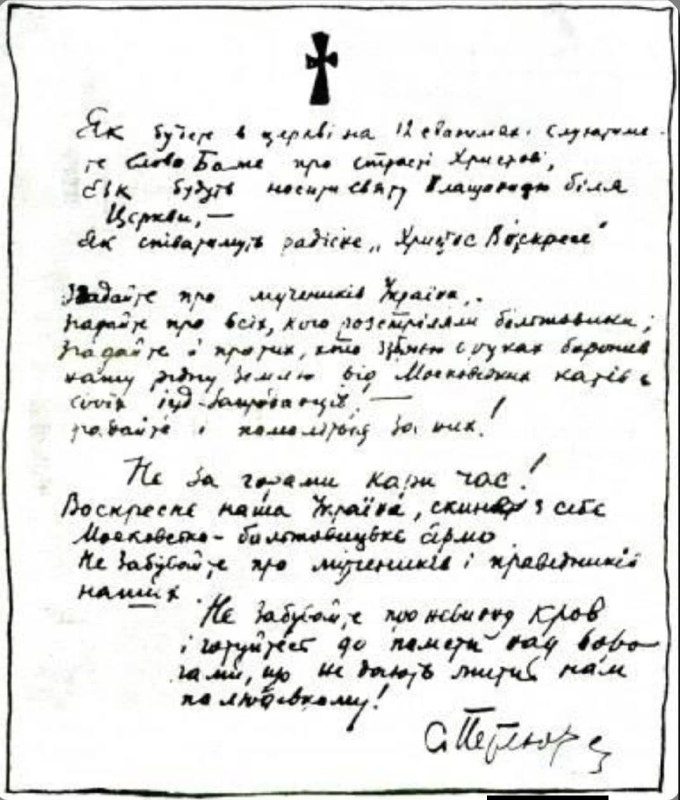 Як будете в церкві на 12 євангиях слухатиме-
те Слово Боже про страсті Христові,
Як будуть носити святу Плащаницю біля
Церкви, —
Як співатимуть радісне „Христос Воскресе"
Згадайте про мучеників України.
Згадайте про всіх, кого розстріляли більшовики;
Згадайте і про тих, хто зброєю в руках боронив
нашу рідну землю від Московських катів і
своїх іуд-запроданців, —
згадайте і помоліться за них!
Не за горами наш час!
Воскресне наша Україна, скине з себе
Московсько-більшовицьке ярмо
Не забувайте про мучеників і праведників
наших.
Не забувайте про невинну кров
і готуйтесь до помсти над воро-
гами, що не дають жити нам
по людському!
С. Петлюра